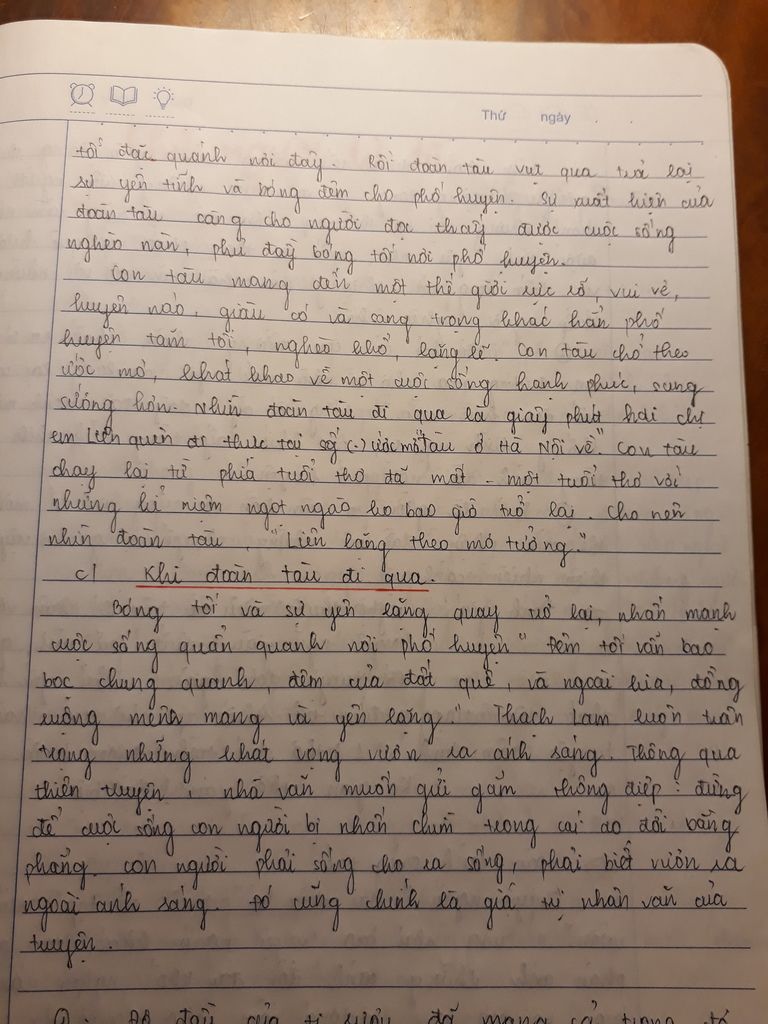 Thứ ngày
tối đặc quánh nơi đây. Rồi đoàn tàu vụt qua trả lại
sự yên tĩnh và bóng đêm cho phố huyện. Sự xuất hiện của
đoàn tàu càng cho người đọc thấy được cuộc sống
nghèo nàn, phủ đầy bóng tối nơi phố huyện.
Con tàu mang đến một thế giới rực rỡ, vui vẻ,
huyên náo, giàu có và sang trọng khác hẳn phố
huyện tăm tối, nghèo khổ, lặng lẽ. Con tàu chở theo
ước mơ, khát khao về một cuộc sống hạnh phúc, sung
sướng hơn. Nhìn đoàn tàu đi qua là giây phút hai chị
em Liên quên đi thực tại (-) ước mơ "tàu ở Hà Nội về". Con tàu
chạy lại từ phía tuổi thơ đã mất - một tuổi thơ với
những kỉ niệm ngọt ngào ko bao giờ trở lại. Cho nên
nhìn đoàn tàu, "Liên lặng theo mơ tưởng."
c/ Khi đoàn tàu đi qua.
Bóng tối và sự yên lặng quay trở lại, nhấn mạnh
cuộc sống quẩn quanh nơi phố huyện "Đêm tối vẫn bao
bọc chung quanh, đêm của đất quê, và ngoài kia, đồng
ruộng mênh mang và yên lặng." Thạch Lam luôn trân
trọng những khát vọng vươn ra ánh sáng. Thông qua
thiên truyện, nhà văn muốn gửi gắm thông điệp: đừng
để cuộc sống con người bị nhấn chìm trong cái ao đời bằng
phẳng. con người phải sống cho ra sống, phải biết vươn ra
ngoài ánh sáng. Đó cũng chính là giá trị nhân văn của
truyện.